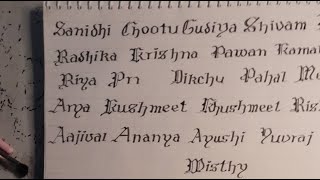 Sanidhi Chootu Gudiya Shivam
Radhika Krishna Pawan Kamal
Riya Pri Dikchu Pahal
Arya Kushmeet Khushmeet
Aajivai Ananya Ayushi Yuvraj
Misthy